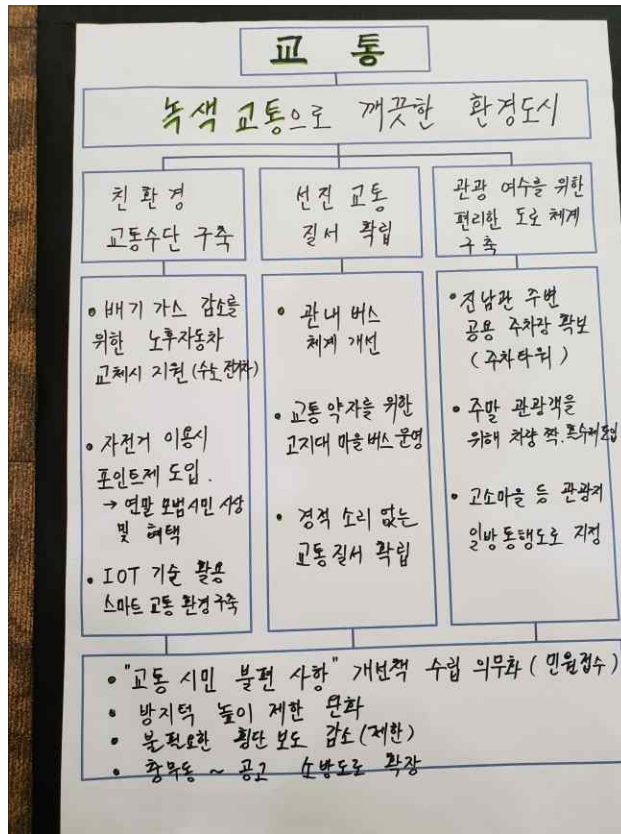 교 통
녹색 교통으로 깨끗한 환경도시
친환경
교통수단 구축
선진 교통
질서 확립
관광 여수를 위한
편리한 도로 체계
구축
• 배기 가스 감소를
위한 노후자동차
교체시 지원 (수소전기차)
• 자전거 이용시
포인트제 도입.
→ 연말 모범시민 시상
및 혜택
• IOT 기술 활용
스마트 교통 환경 구축
• 관내 버스
체계 개선
• 교통 약자를 위한
고지대 마을버스 운영
• 경적 소리 없는
교통 질서 확립
• 진남관 주변
공용 주차장 확보
(주차타워)
• 주말 관광객을
위해 차량 짝.홀수제 도입
• 고소마을 등 관광지
일방통행도로 지정
• "교통 시민 불편 사항" 개선책 수립 의무화 (민원접수)
• 방지턱 높이 제한 완화
• 불필요한 횡단 보도 감소 (제한)
• 충무동 ~ 공고 소방도로 확장